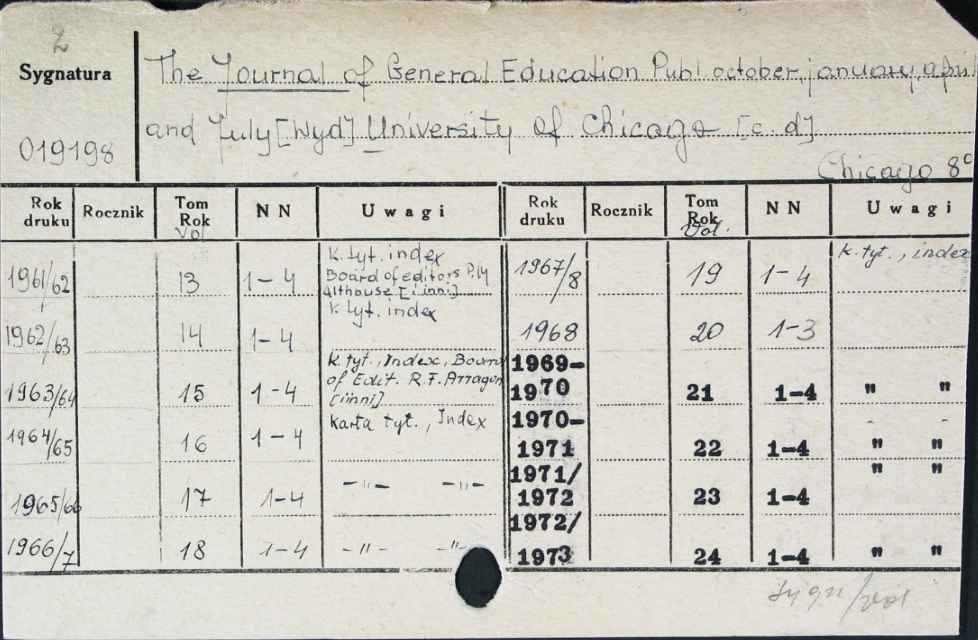 Z
Sygnatura
019198
The Journal of General Education Publ october, january, april
and July [Wyd] University of Chicago [c. d]
Chicago 8°
Rok druku Rocznik Tom Rok Vol NN Uwagi Rok druku Rocznik Tom Rok Vol. NN Uwagi
1961/62 13 1-4 k. tyt. index
Board of editors P.ly
althouse [i inni]
1962/63 14 1-4 k. tyt. index
1963/64 15 1-4 k. tyt., Index, Board
of Edit. R.F. Arragon
[i inni]
1964/65 16 1-4 Karta tyt., Index
1965/66 17 1-4 -"- -"-
1966/7 18 1-4 -"- -"-
1967/8 19 1-4 k. tyt., index
1968 20 1-3
1969-
1970 21 1-4 " "
1970-
1971 22 1-4 " "
1971/
1972 23 1-4 " "
1972/
1973 24 1-4 " "